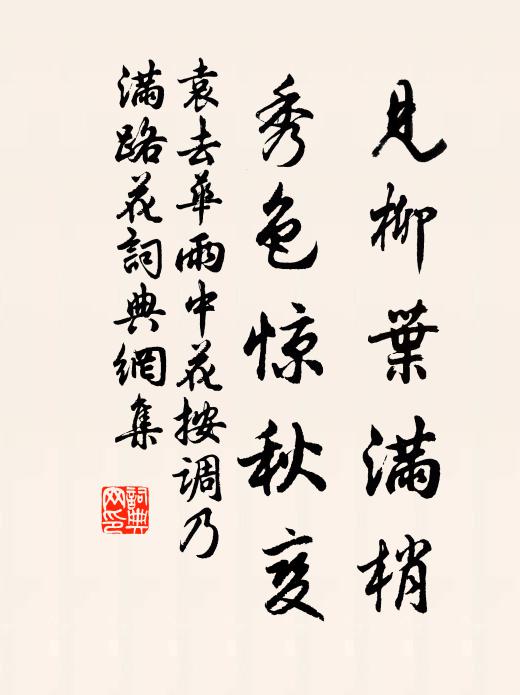 見柳葉满梢
秀色惊秋变
袁去華雨中花按調乃
满路花詞典網集
詞典网印